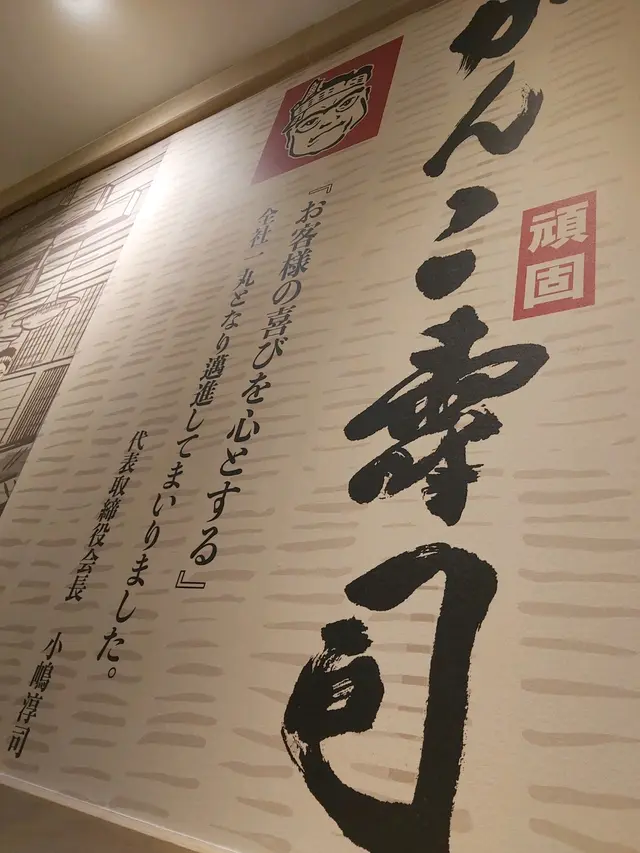 がんこ寿司
頑固
『お客様の喜びを心とする』
全社一丸となり邁進してまいりました。
代表取締役会長 小嶋淳司